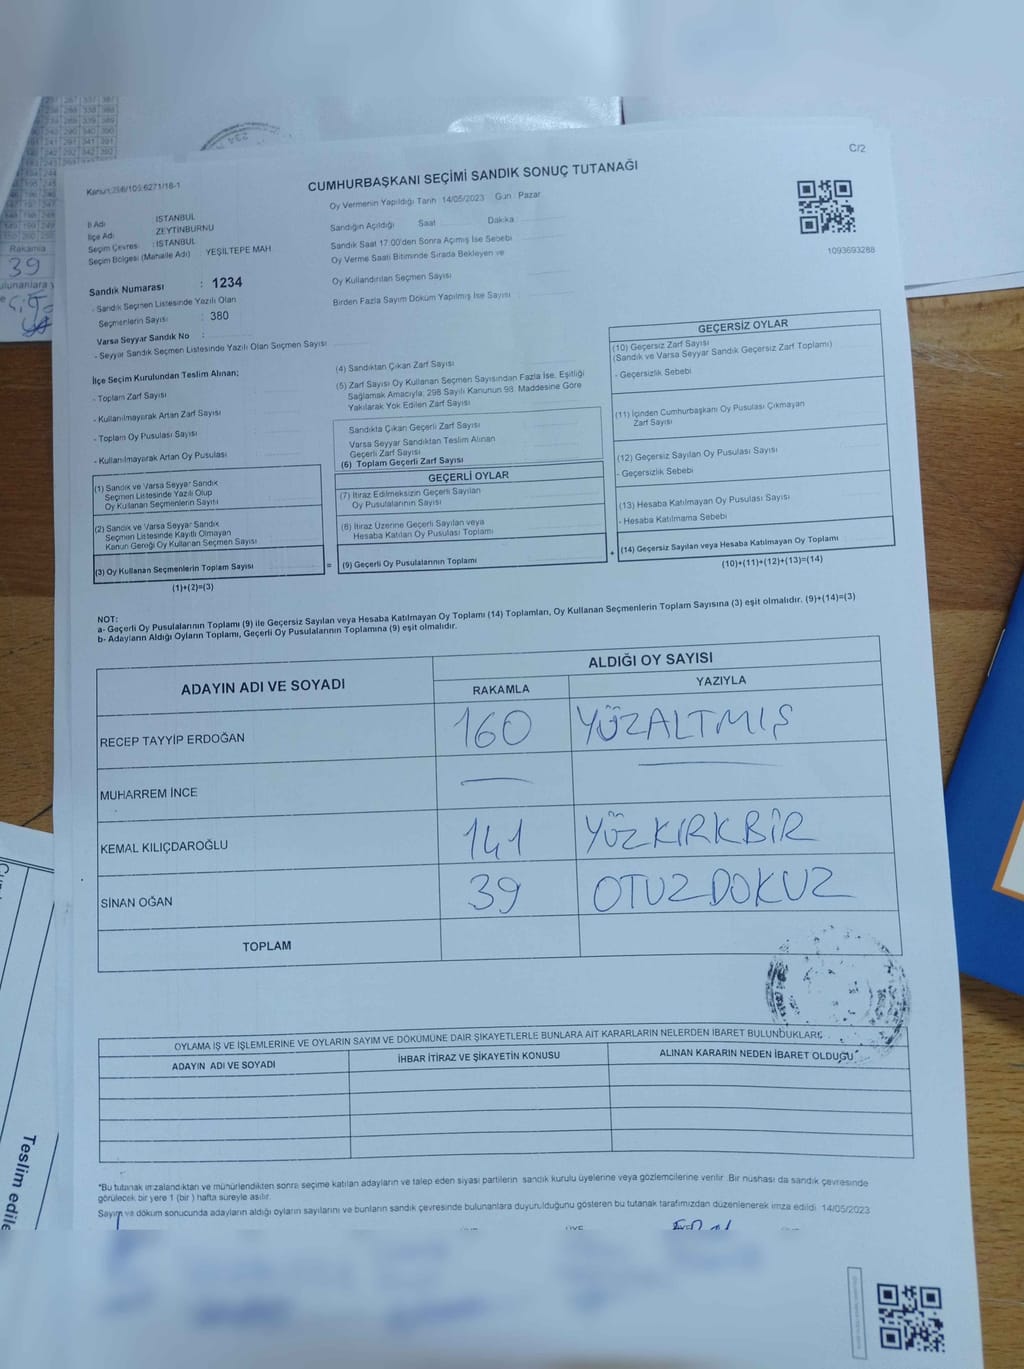 C/2
Kanun:298/109.6271/18-1
CUMHURBAŞKANI SEÇİMİ SANDIK SONUÇ TUTANAĞI
Oy Vermenin Yapıldığı Tarih 14/05/2023 Gün : Pazar
İl Adı : İSTANBUL
İlçe Adı : ZEYTİNBURNU
Seçim Çevres : İSTANBUL
Seçim Bölgesi (Mahalle Adı) YEŞİLTEPE MAH
Sandığın Açıldığı Saat Dakika
Sandık Saat 17:00'den Sonra Açımış İse Sebebi
Oy Verme Saati Bitiminde Sırada Bekleyen ve
Oy Kullandırılan Seçmen Sayısı
Birden Fazla Sayım Döküm Yapılmış İse Sayısı
1093693288
Sandık Numarası : 1234
- Sandık Seçmen Listesinde Yazılı Olan
Seçmenlerin Sayısı : 380
Varsa Seyyar Sandık No :
- Seyyar Sandık Seçmen Listesinde Yazılı Olan Seçmen Sayısı
İlçe Seçim Kurulundan Teslim Alınan;
- Toplam Zarf Sayısı
- Kullanılmayarak Artan Zarf Sayısı
- Toplam Oy Pusulası Sayısı
- Kullanılmayarak Artan Oy Pusulası
(1) Sandık ve Varsa Seyyar Sandık
Seçmen Listesinde Yazılı Olup
Oy Kullanan Seçmenlerin Sayısı
(2) Sandık ve Varsa Seyyar Sandık
Seçmen Listesinde Kayıtlı Olmayan
Kanun Gereği Oy Kullanan Seçmen Sayısı
(3) Oy Kullanan Seçmenlerin Toplam Sayısı
(1)+(2)=(3)
(4) Sandıktan Çıkan Zarf Sayısı
(5) Zarf Sayısı Oy Kullanan Seçmen Sayısından Fazla İse, Eşitliği
Sağlamak Amacıyla; 298 Sayılı Kanunun 98. Maddesine Göre
Yakılarak Yok Edilen Zarf Sayısı
Sandıkta Çıkan Geçerli Zarf Sayısı
Varsa Seyyar Sandıktan Teslim Alınan
Geçerli Zarf Sayısı
(6) Toplam Geçerli Zarf Sayısı
GEÇERLİ OYLAR
(7) İtiraz Edilmeksizin Geçerli Sayılan
Oy Pusulalarının Sayısı
(8) İtiraz Üzerine Geçerli Sayılan veya
Hesaba Katılan Oy Pusulası Toplamı
= (9) Geçerli Oy Pusulalarının Toplamı
GEÇERSİZ OYLAR
(10) Geçersiz Zarf Sayısı
(Sandık ve Varsa Seyyar Sandık Geçersiz Zarf Toplamı)
- Geçersizlik Sebebi
(11) İçinden Cumhurbaşkanı Oy Pusulası Çıkmayan
Zarf Sayısı
(12) Geçersiz Sayılan Oy Pusulası Sayısı
- Geçersizlik Sebebi
(13) Hesaba Katılmayan Oy Pusulası Sayısı
- Hesaba Katılmama Sebebi
+ (14) Geçersiz Sayılan veya Hesaba Katılmayan Oy Toplamı
(10)+(11)+(12)+(13)=(14)
NOT:
a- Geçerli Oy Pusulalarının Toplamı (9) ile Geçersiz Sayılan veya Hesaba Katılmayan Oy Toplamı (14) Toplamları, Oy Kullanan Seçmenlerin Toplam Sayısına (3) eşit olmalıdır. (9)+(14)=(3)
b- Adayların Aldığı Oyların Toplamı, Geçerli Oy Pusulalarının Toplamına (9) eşit olmalıdır.
ADAYIN ADI VE SOYADI
ALDIĞI OY SAYISI
RAKAMLA YAZIYLA
RECEP TAYYİP ERDOĞAN 160 YÜZALTMIŞ
MUHARREM İNCE
KEMAL KILIÇDAROĞLU 141 YÜZKIRKBİR
SİNAN OĞAN 39 OTUZDOKUZ
TOPLAM
OYLAMA İŞ VE İŞLEMLERİNE VE OYLARIN SAYIM VE DÖKÜMÜNE DAİR ŞİKAYETLERLE BUNLARA AİT KARARLARIN NELERDEN İBARET BULUNDUKLARI
ADAYIN ADI VE SOYADI İHBAR İTİRAZ VE ŞİKAYETİN KONUSU ALINAN KARARIN NEDEN İBARET OLDUĞU
*Bu tutanak imzalandıktan ve mühürlendikten sonra seçime katılan adayların ve talep eden siyasi partilerin sandık kurulu üyelerine veya gözlemcilerine verilir. Bir nüshası da sandık çevresinde
görülecek bir yere 1 (bir ) hafta süreyle asılır.
Sayım ve döküm sonucunda adayların aldığı oyların sayılarını ve bunların sandık çevresinde bulunanlara duyurulduğunu gösteren bu tutanak tarafımızdan düzenlenerek imza edildi 14/05/2023
Rakamla
39
Teslim edile